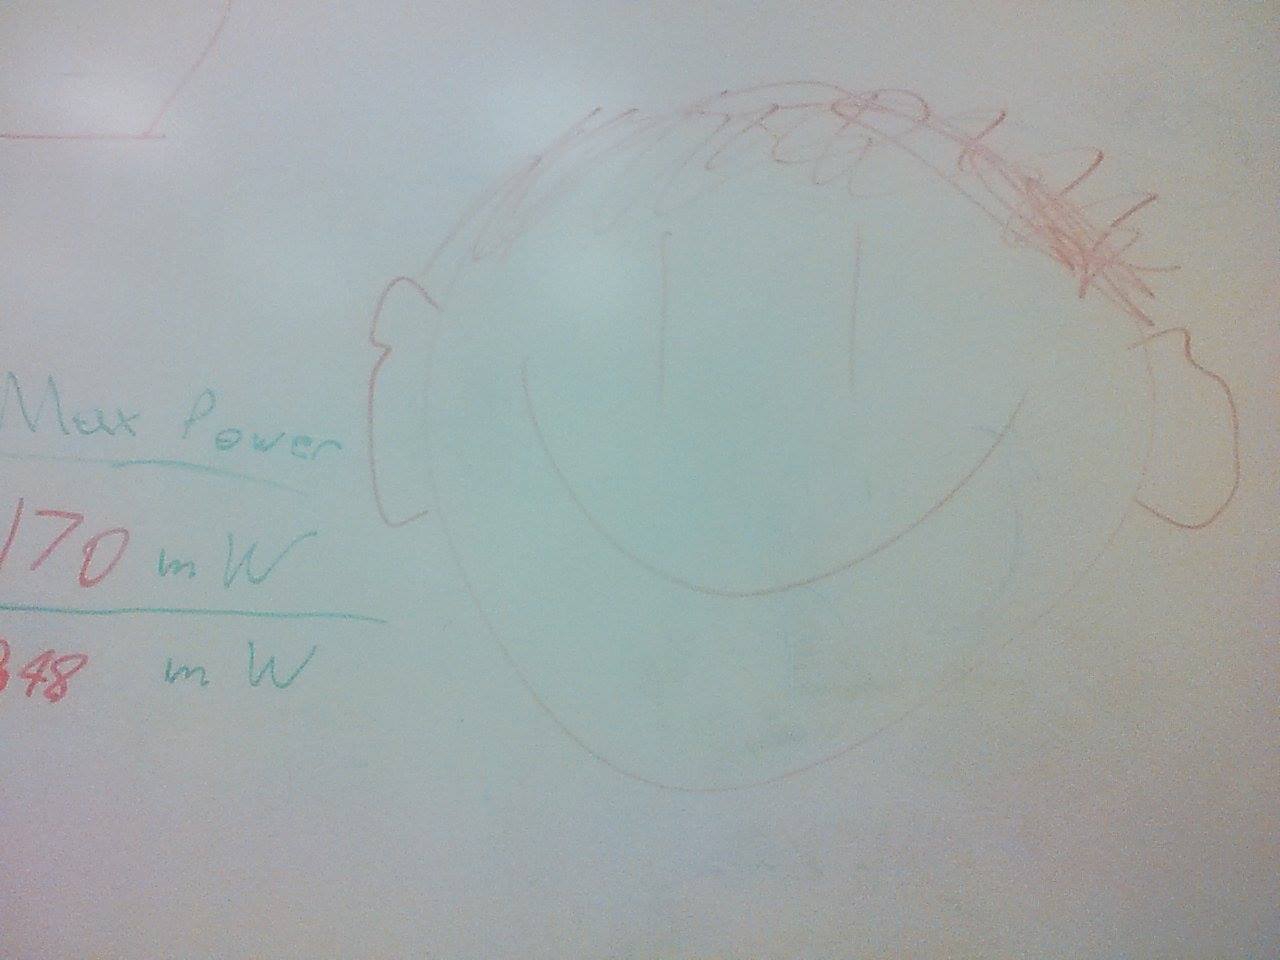 Max Power
170 mW
348 mW